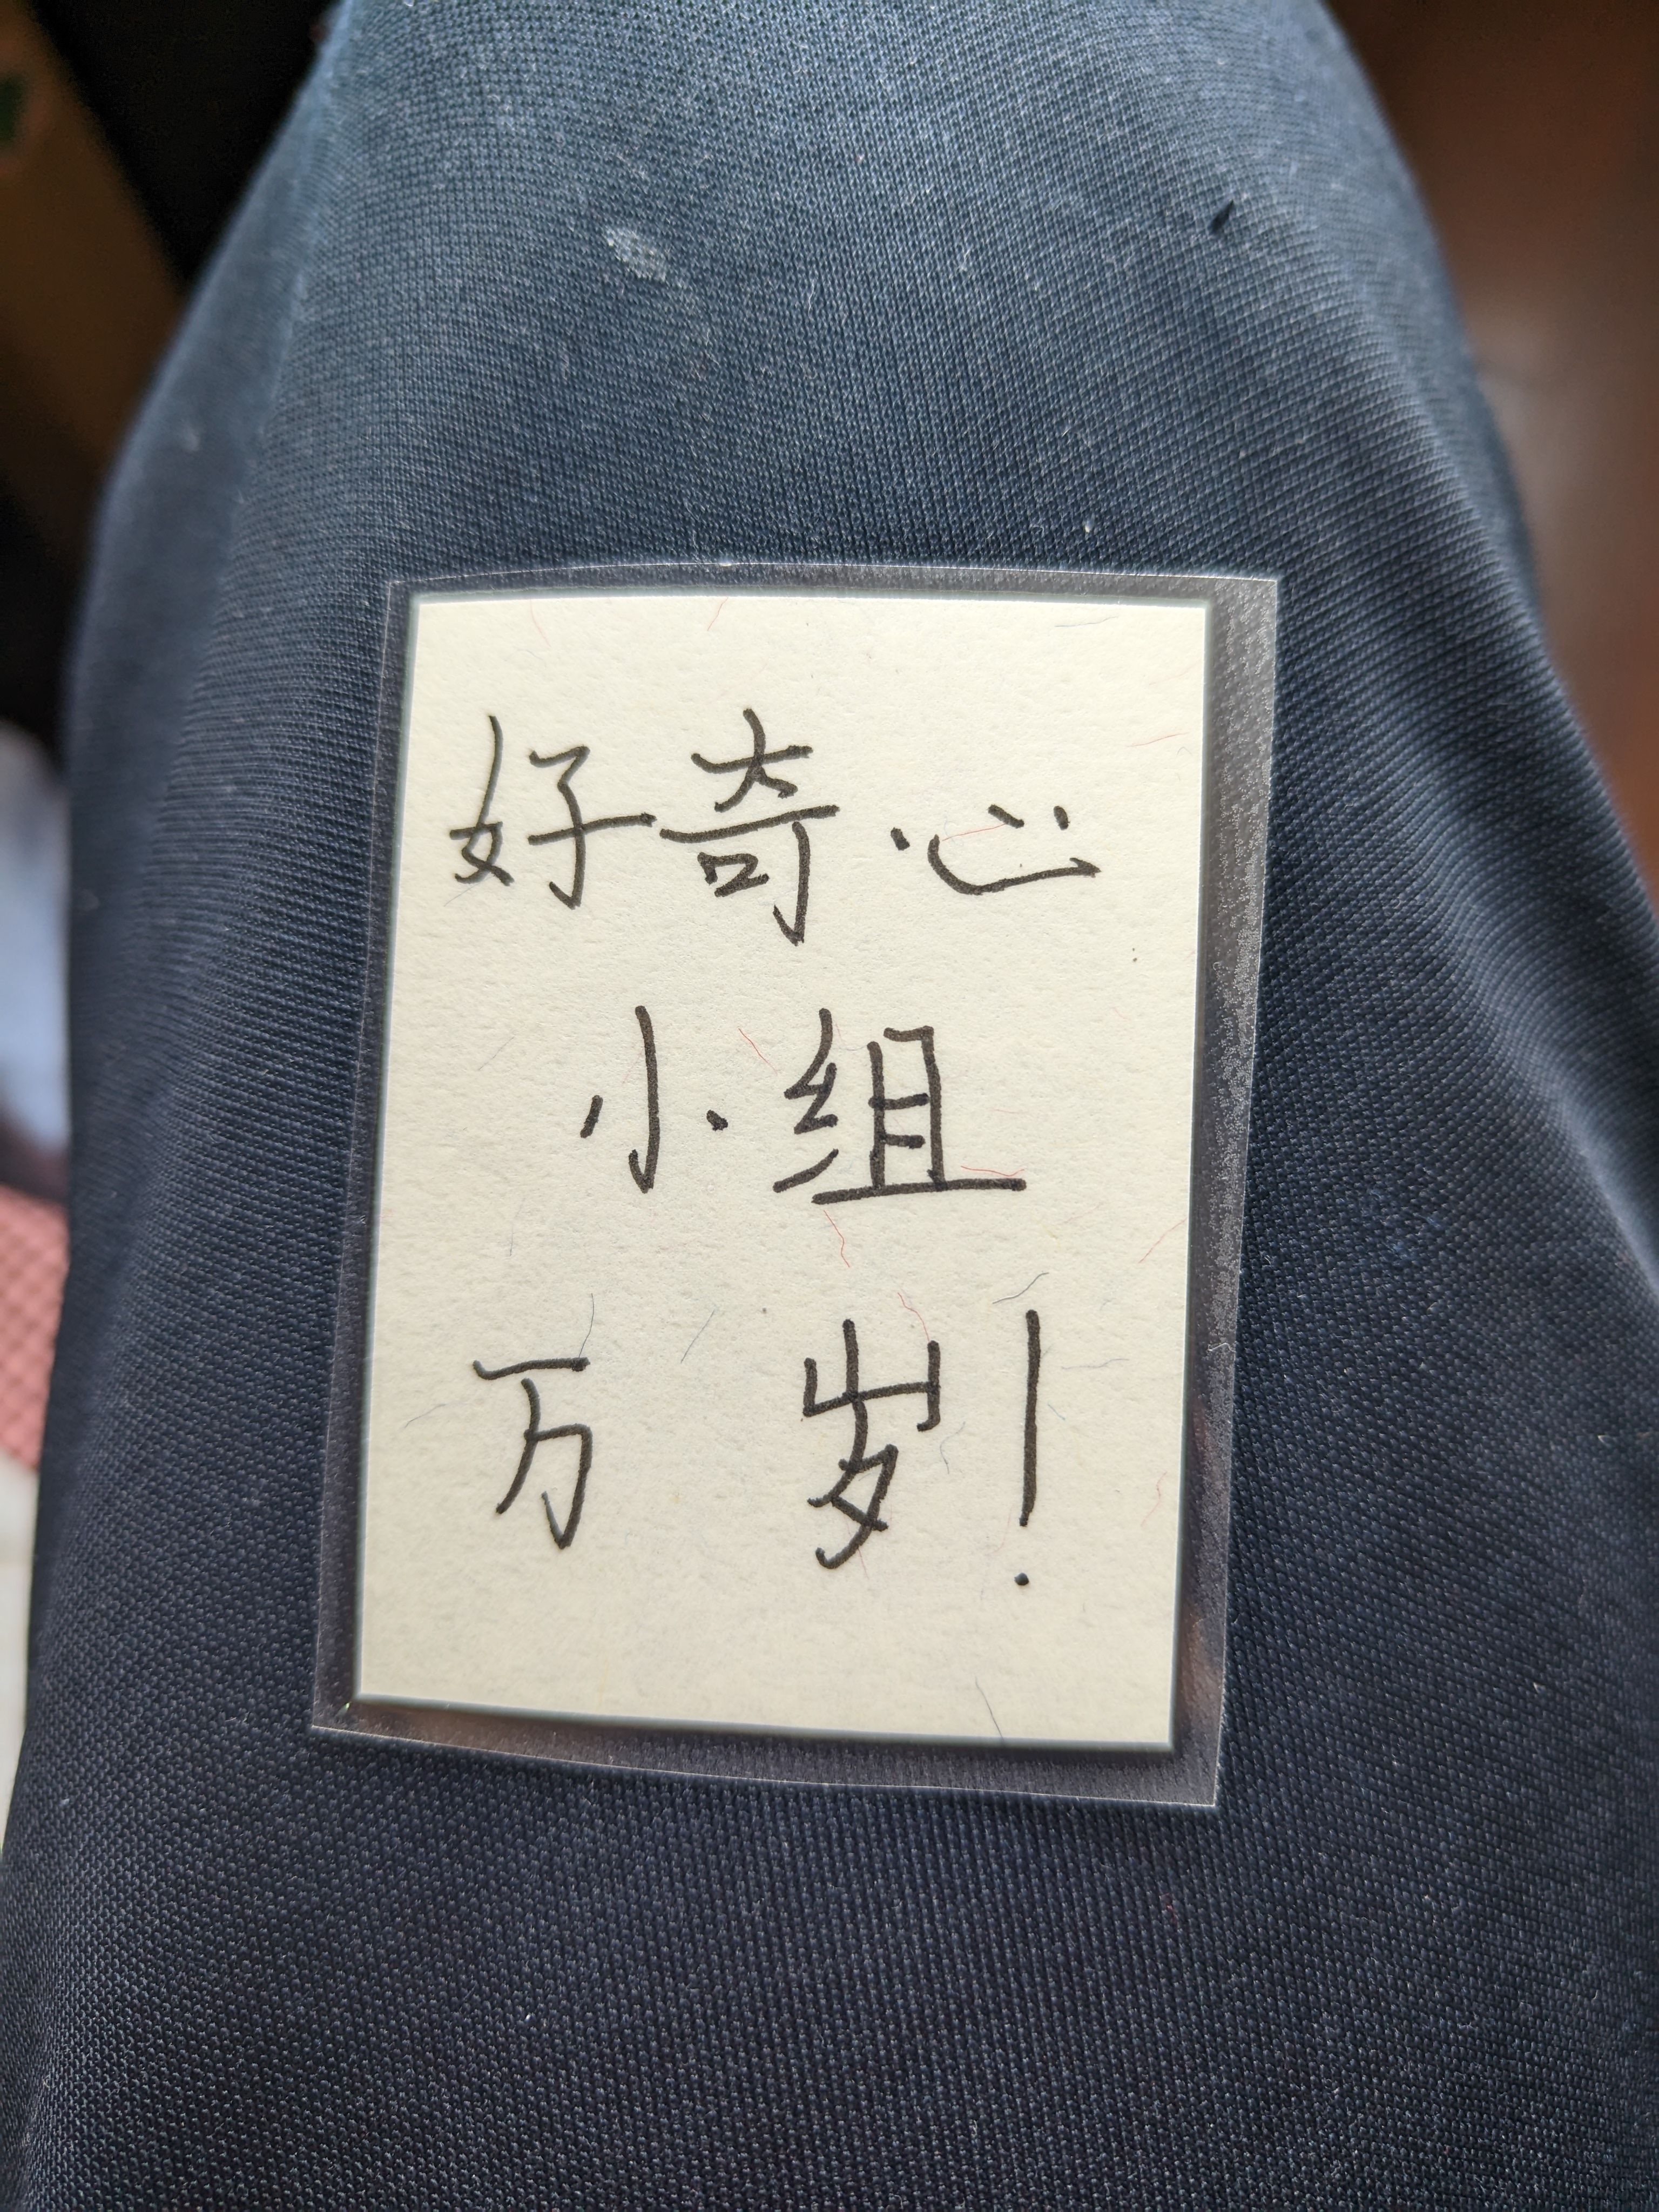 好奇心
小组
万岁!